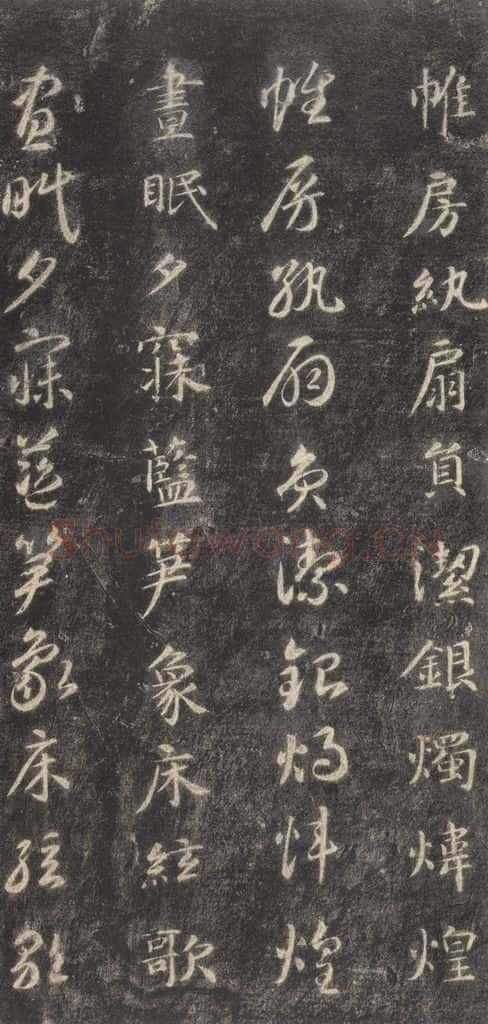 帷房紈扇員潔銀燭煒煌
帷房紈扇員潔銀燭煒煌
晝眠夕寐藍笋象床絃歌
晝眠夕寐藍笋象床絃歌
Shufawang.CN